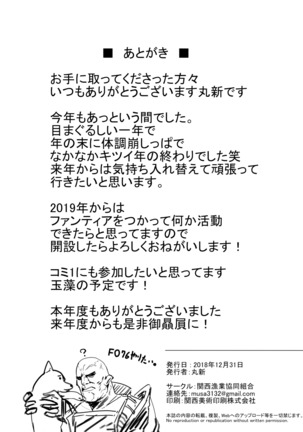 ■ あとがき ■
お手に取ってくださった方々
いつもありがとうございます丸新です
今年もあっという間でした。
目まぐるしい一年で
年の末に体調崩しっぱで
なかなかキツイ年の終わりでした笑
来年からは気持ち入れ替えて頑張って
行きたいと思います。
2019年からは
ファンティアをつかって何か活動
できたらと思ってますので
開設したらよろしくおねがいします！
コミ1にも参加したいと思ってます
玉藻の予定です！
本年度もありがとうございました
来年度からも是非御贔屓に！
FO76やりた…
発行日：2018年12月31日
発行者：丸新
サークル：関西漁業協同組合
連絡先：musa3132@gmail.com
印刷：関西美術印刷株式会社
本誌の内容の転載、複製、Webへのアップロード等を一切禁じます。
No reproduction or republication without written permission.